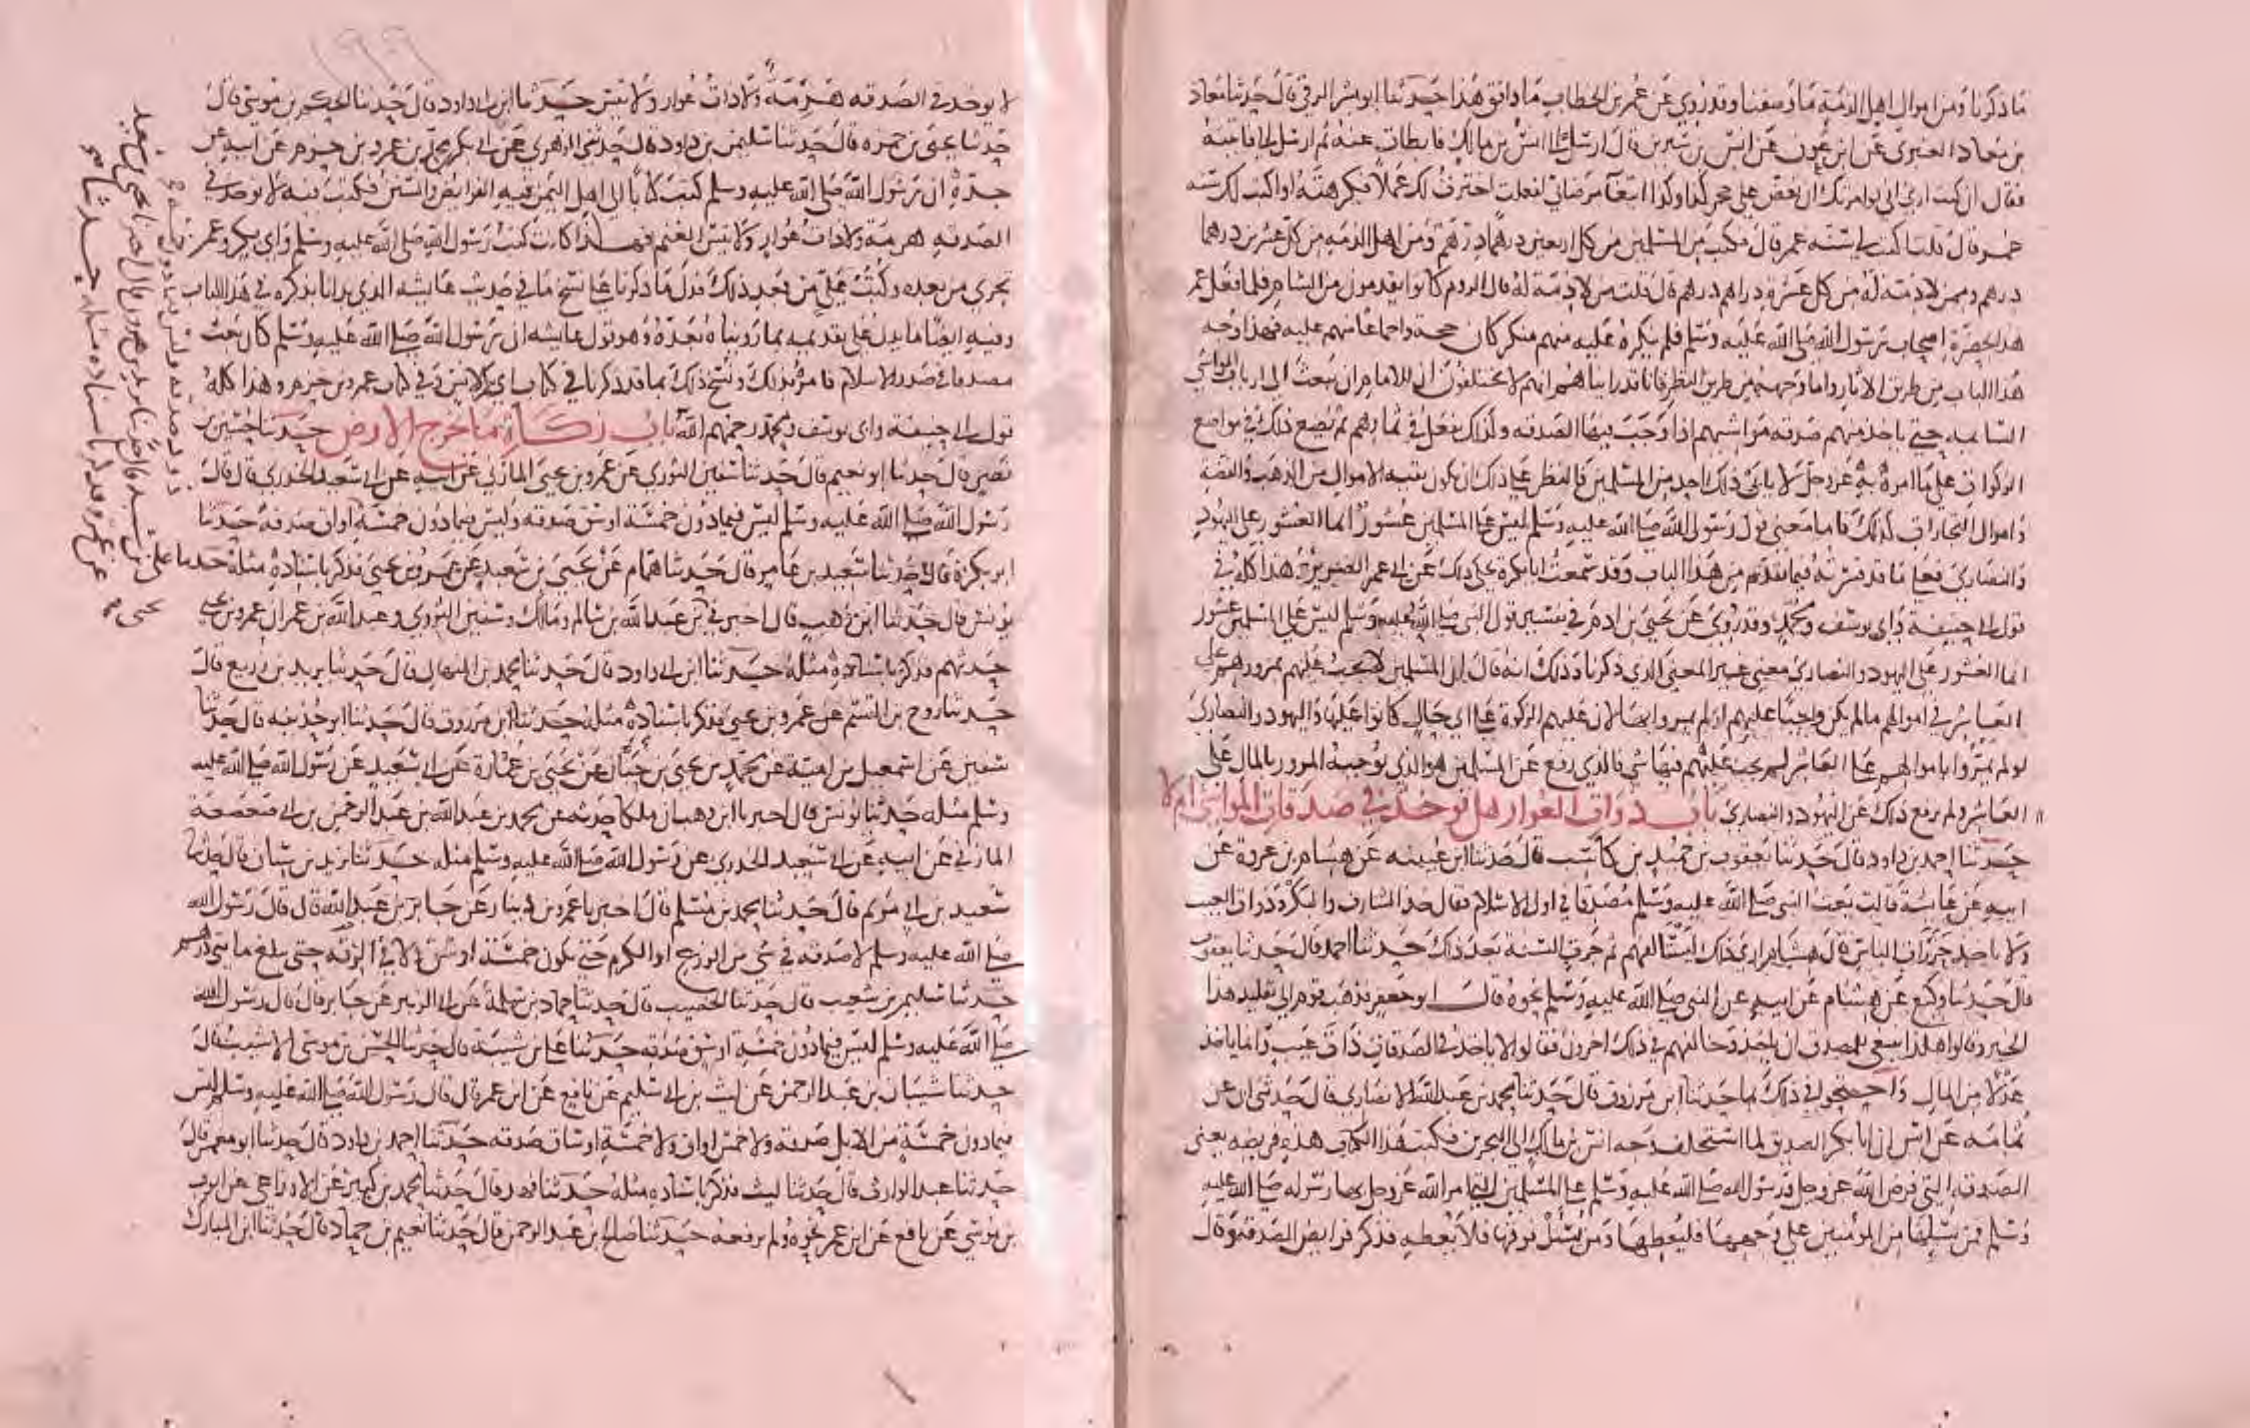 ما ذكرنا ومن اموال اهل الذمة ما وصفنا وقد روي عن عمر بن الخطاب ما وافق هذا حدثنا ابو بشر الرقي قال حدثنا معاذ
بن معاذ العنبري عن ابن عون عن انس بن سيرين قال ارسل الي انس بن مالك فابطات عنه ثم ارسل الي فاتيته
فقال ان كنت اري اني لو امرتك ان تعض على حجر كذا وكذا ابتغا مرضاتي لفعلت اخترت لك عملا فكرهته او اكتب لك سنة
عمر قال قلت اكتب لي سنة عمر قال فكتب من المسلمين من كل اربعين درهما درهم ومن اهل الذمة من كل عشرين درهما
درهم وممن لا ذمة له من كل عشرة دراهم درهم قال قلت من لا ذمة له قال الروم كانوا يقدمون من الشام فلما فعل عمر
هذا بحضرة اصحاب رسول الله صلى الله عليه وسلم فلم ينكره عليه منهم منكر كان حجة واجماعا منهم عليه فهذا وجه
هذا الباب من طريق الاثار واما وجهه من طريق النظر فانا قد رايناهم انهم لا يختلفون ان للامام ان يبعث الى ارباب المواشي
السايمة حتى ياخذ منهم صدقة مواشيهم اذا وجبت فيها الصدقة وكذلك يفعل في ثمارهم ثم يضع ذلك في مواضع
الزكوات على ما امره به عز وجل لا يابى ذلك احد من المسلمين فالنظر على ذلك ان يكون بقية الاموال من الذهب والفضة
واموال التجارات كذلك فاما معنى قول رسول الله صلى الله عليه وسلم ليس على المسلمين عشور انما العشور على اليهود
والنصارى فعلى ما قد فسرته فيما تقدم من هذا الباب وقد سمعت ابا بكرة يحكي ذلك عن ابي عمر الضرير وهذا كله في
قول ابي حنيفة وابي يوسف ومحمد وقد روي عن يحيى بن ادم في تفسير قول النبي صلى الله عليه وسلم ليس على المسلمين عشور
انما العشور على اليهود والنصارى معنى غير المعنى الذي ذكرنا وذلك انه قال ان المسلمين لا يجب عليهم بمرورهم على
العاشر في اموالهم ما لم يكن واجبا عليهم لو لم يمروا بها لان عليهم الزكوة على اي حال كانوا عليها واليهود والنصارى
لو لم يمروا باموالهم على العاشر لم يجب عليهم فيها شي فالذي رفع عن المسلمين هو الذي يوجبه المرور بالمال على
العاشر ولم يرفع ذلك عن اليهود والنصارى باب ذوات العوار هل توخذ في صدقات المواشي ام لا
حدثنا احمد بن داود قال حدثنا يعقوب بن حميد بن كاسب قال حدثنا ابن عيينة عن هشام بن عروة عن
ابيه عن عايشة قالت بعث النبي صلى الله عليه وسلم مصدقا في اول الاسلام فقال خذ الشارف والبكر وذوات العيب
ولا تاخذ حزرات الناس قال هشام ارى ذلك ليستالفهم ثم جرت السنة بعد ذلك حدثنا احمد قال حدثنا يعقوب
قال حدثنا وكيع عن هشام عن ابيه عن النبي صلى الله عليه وسلم نحوه قال ابو جعفر فذهب قوم الى تقليد هذا
الخبر وقالوا هكذا ينبغي للمصدق ان ياخذ وخالفهم في ذلك اخرون فقالوا لا ياخذ في الصدقات ذات عيب وانما ياخذ
عدلا من المال واحتجوا في ذلك بما حدثنا ابن مرزوق قال حدثنا محمد بن عبد الله الانصاري قال حدثني ابي عن
ثمامة عن انس ان ابا بكر الصديق لما استخلف وجه انس بن مالك الى البحرين فكتب هذا الكتاب هذه فريضة يعني
الصدقة التي فرض الله عز وجل رسول الله صلى الله عليه وسلم على المسلمين التي امر الله عز وجل بها رسوله صلى الله عليه
وسلم فمن سيلها من المؤمنين على وجهها فليعطها ومن سئل فوقها فلا يعطه فذكر فرايض الصدقة وقال
لا يوخذ في الصدقة هرمة ولا ذات عوار ولا تيس حدثنا ابن ابي داود قال حدثنا الحكم بن موسى قال
حدثنا يحيى بن حمزة قال حدثنا سليمن بن داود قال حدثني الزهري عن ابي بكر بن محمد بن عمرو بن حزم عن ابيه عن
جده ان رسول الله صلى الله عليه وسلم كتب كتابا الى اهل اليمن فيه الفرايض والسنن فكتب فيه لا يوخذ في
الصدقة هرمة ولا ذات عوار ولا تيس الغنم فهكذا كانت كتب رسول الله صلى الله عليه وسلم وابي بكر وعمر
تجري من بعده وكتب علي من بعد ذلك فدل ما ذكرنا على نسخ ما في حديث عايشة الذي بدانا بذكره في هذا الباب
وفيه ايضا ما يدل على تقديمه لما رويناه بعده وهو قول عايشة ان رسول الله صلى الله عليه وسلم كان بعث
مصدقا في صدر الاسلام فامره بذلك ونسخ ذلك بما قد ذكرنا في كتاب ابي بكر لانس وفي كتاب عمرو بن حزم وهذا كله
قول ابي حنيفة وابي يوسف ومحمد رحمهم الله باب زكاة ما يخرج الارض حدثنا حسين بن
نصر قال حدثنا ابو نعيم قال حدثنا سفين الثوري عن عمرو بن يحيى المازني عن ابيه عن ابي سعيد الخدري قال قال
رسول الله صلى الله عليه وسلم ليس فيما دون خمسة اوسق صدقة وليس فيما دون خمسة اواق صدقة حدثنا
ابو بكرة قال حدثنا سعيد بن عامر قال حدثنا همام عن يحيى بن سعيد عن عمرو بن يحيى فذكر باسناده مثله حدثنا
يونس قال حدثنا ابن وهب قال اخبرني عبد الله بن سالم ومالك وسفين الثوري وعبد الله بن عمر ان عمرو بن يحيى
حدثهم فذكر باسناده مثله حدثنا ابن ابي داود قال حدثنا محمد بن المنهال قال حدثنا يزيد بن زريع قال
حدثنا روح بن القسم عن عمرو بن يحيى فذكر باسناده مثله حدثنا ابن مرزوق قال حدثنا ابو حذيفة قال حدثنا
سفين عن اسمعيل بن امية عن محمد بن يحيى بن حبان عن يحيى بن عمارة عن ابي سعيد عن رسول الله صلى الله عليه
وسلم مثله حدثنا يونس قال اخبرنا ابن وهب ان ملكا حدثه عن محمد بن عبد الله بن عبد الرحمن بن ابي صعصعة
المازني عن ابيه عن ابي سعيد الخدري عن رسول الله صلى الله عليه وسلم مثله حدثنا يزيد بن سنان قال حدثنا
سعيد بن ابي مريم قال حدثنا محمد بن مسلم قال اخبرنا عمرو بن دينار عن جابر بن عبد الله قال قال رسول الله
صلى الله عليه وسلم لا صدقة في شي من الزرع او الكرم حتى يكون خمسة اوسق ولا في الرقة حتى تبلغ مايتي درهم
حدثنا سليمن بن شعيب قال حدثنا الخصيب قال حدثنا حماد بن سلمة عن ابي الزبير عن جابر قال قال رسول الله
صلى الله عليه وسلم ليس فيما دون خمسة اوسق صدقة حدثنا علي بن شيبة قال حدثنا الحسن بن موسى الاشيب قال
حدثنا شيبان بن عبد الرحمن عن ليث بن ابي سليم عن نافع عن ابن عمر قال قال رسول الله صلى الله عليه وسلم ليس
فيما دون خمسة من الابل صدقة ولا خمس اواق ولا خمسة اوساق صدقة حدثنا احمد بن داود قال حدثنا ابو معمر قال
حدثنا عبد الوارث قال حدثنا ليث فذكر باسناده مثله حدثنا فهد قال حدثنا محمد بن كثير عن الاوزاعي عن ايوب
بن موسى عن نافع عن ابن عمر نحوه ولم يرفعه حدثنا صالح بن عبد الرحمن قال حدثنا نعيم بن حماد قال حدثنا ابن المبارك
علي بن شيبة قال حدثنا يزيد بن هرون قال اخبرنا يحيى بن سعيد
عن عمرو فذكر باسناده مثله حدثنا